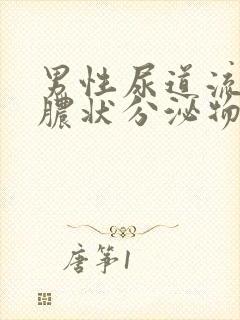 男性尿道流
脓状分泌物
唐筝1